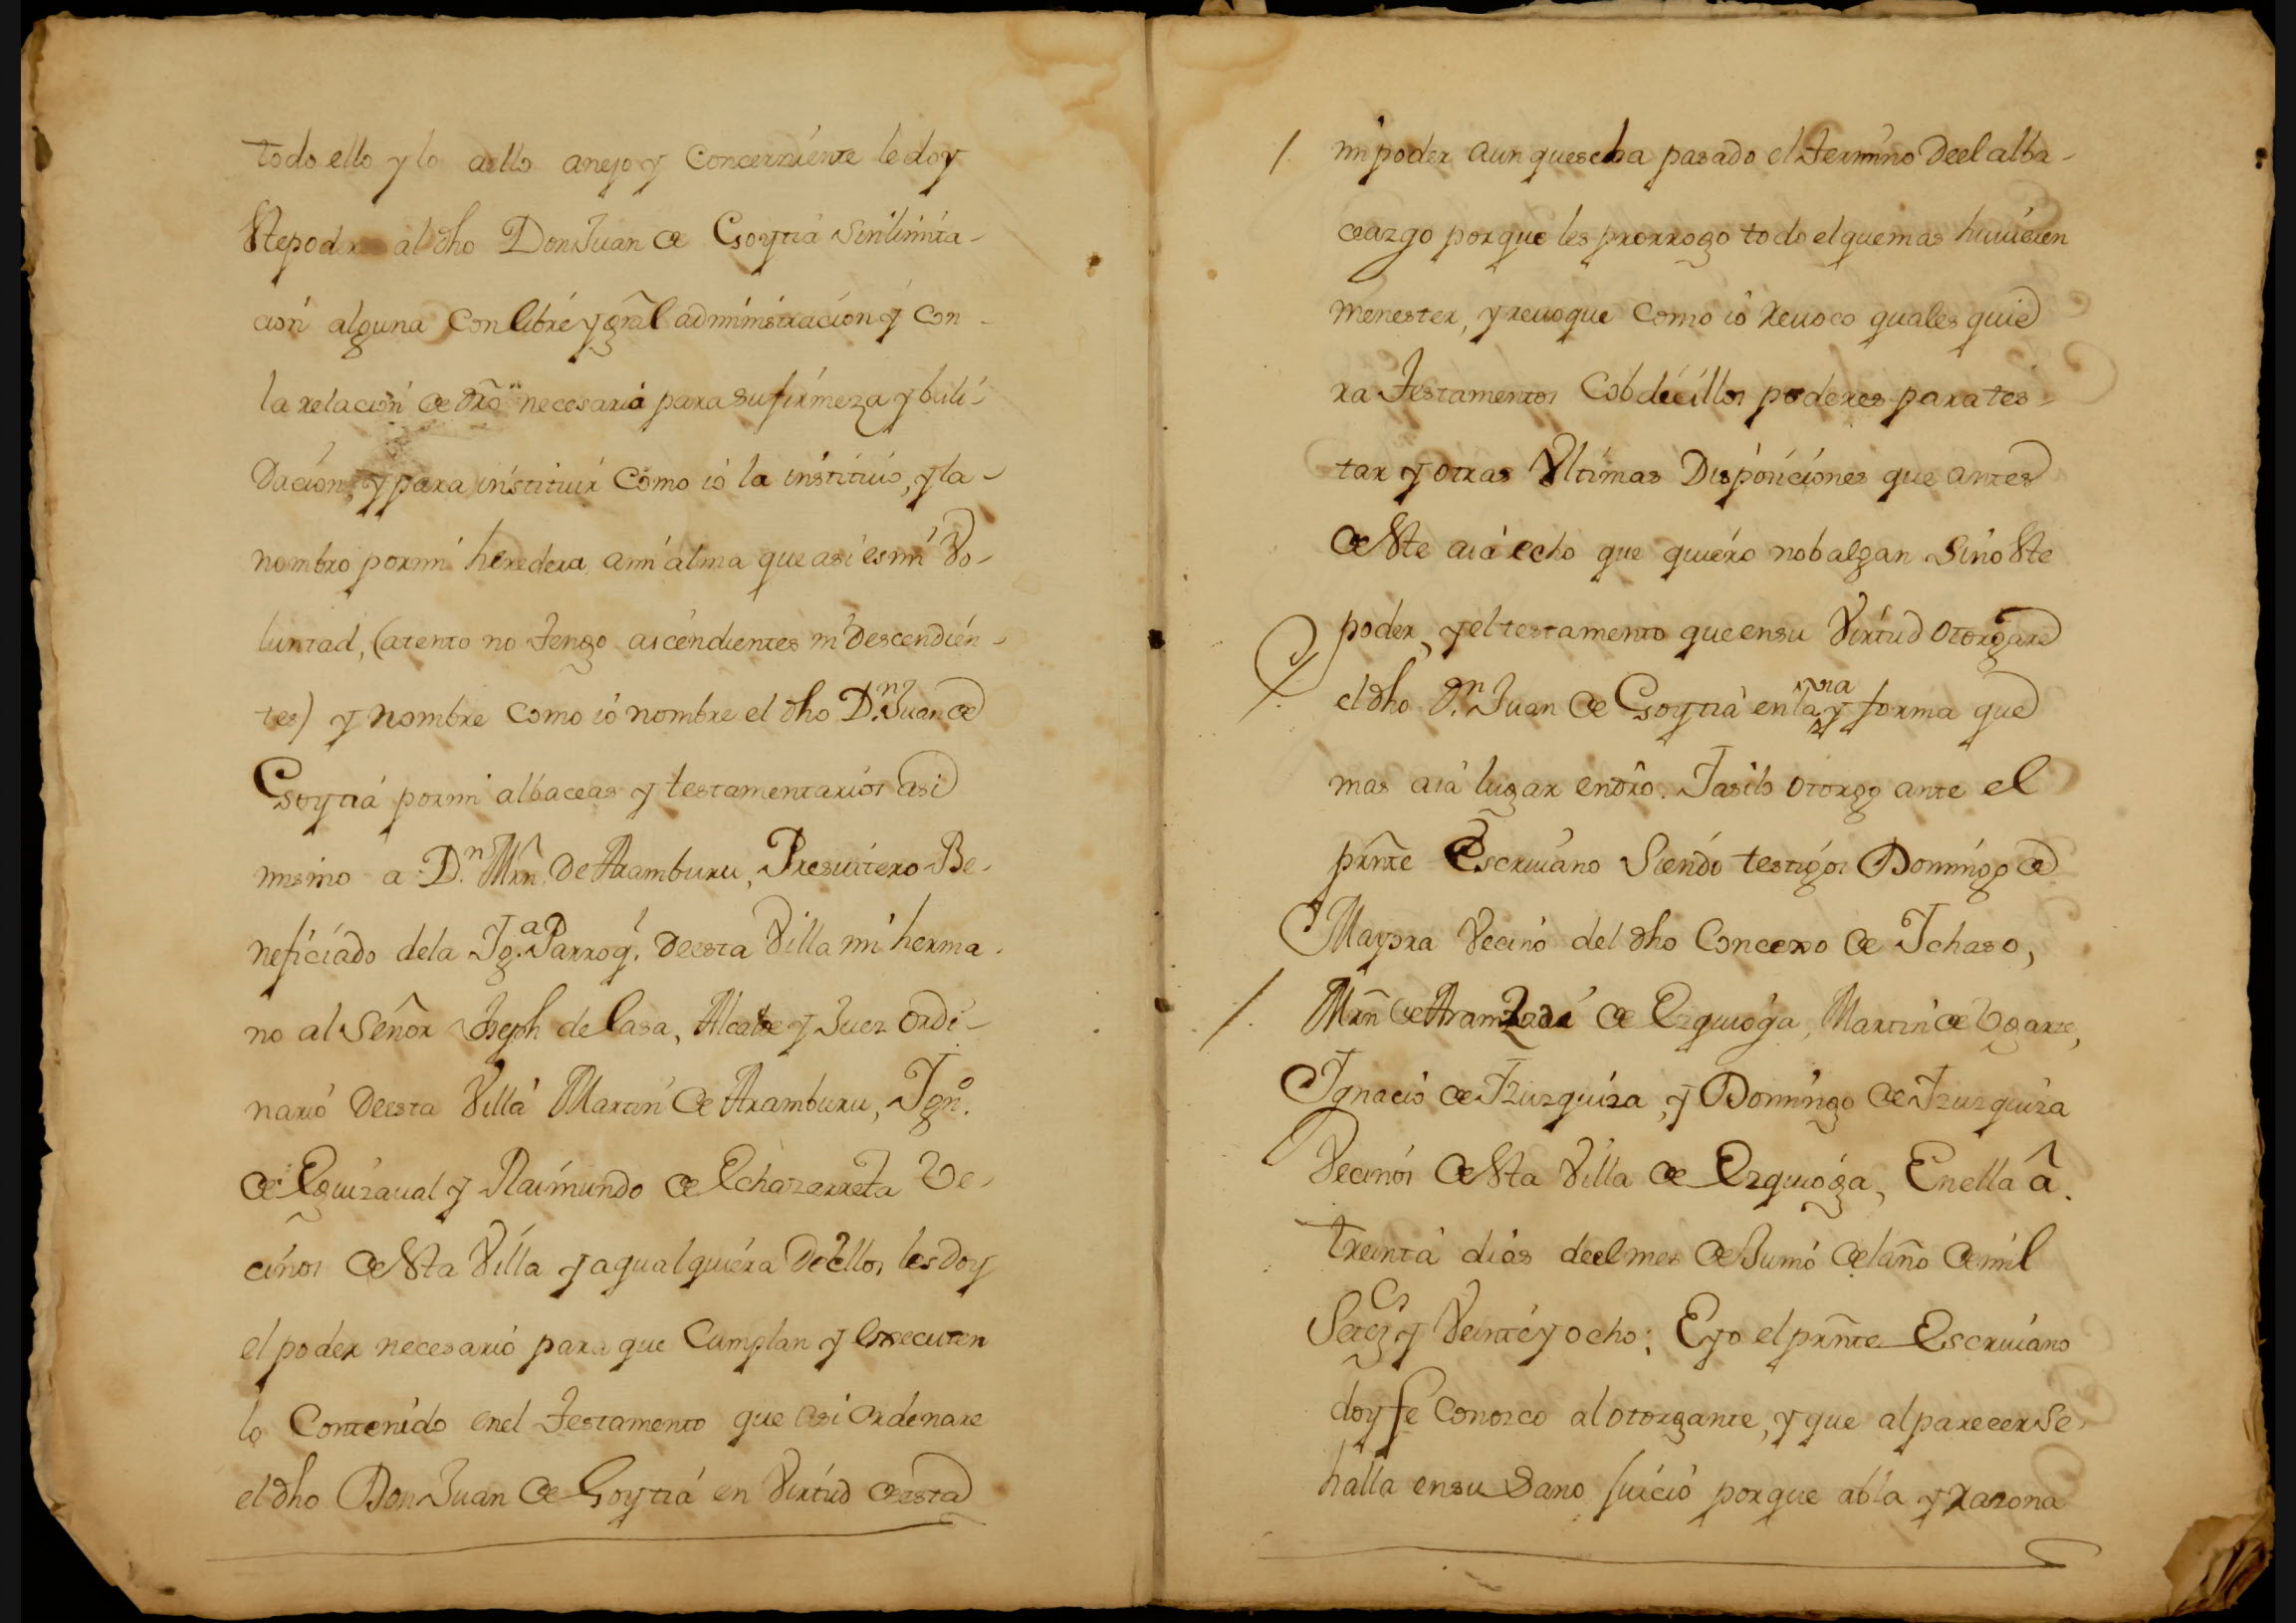 todo ello y lo aello anejo y Concerniente le doy
Stepoder al dho Don Juan de Goytia sin limita-
cion alguna Con libre y gral administracion y con-
la relacion de dro necesaria para su firmeza y bali-
dacion, y para instituir como io la instituio, y la-
nombro por mi heredera ami alma que asi es mi Vo-
luntad, (atento no Tengo ascendientes ni Descendien-
tes) y Nombre como io nombre el dho D.n Juan de
Goytia por mi albaceas y testamentarios asi
mismo a D.n Mrn de Aramburu, Presuitero Be-
neficiado dela Ig.a Parroq.l deesta Villa mi herma-
no al Señor Joseph de Lasa, Alcalde y Juez ordi-
nario deesta Villa Martin de Aramburu, Ign.o
de Eguizaual y Raimundo de Echazarreta Ve-
cinos de Sta Villa y a qualquiera de ellos les doy
el poder necesario para que Cumplan y Executen
lo Contenido enel Testamento que asi ordenare
el dho Don Juan de Goytia en Virtud deesta
mi poder aun quescha pasado el Termino deel alba-
ceazgo porque les prorrogo todo el que mas huuieren
menester, y reuoque como io Reuoco quales quie
ra Testamentos Cobdecillos poderes para tes-
tar y otras Vltimas Disposiciones que antes
de Ste aia echo que quiero no balgan Sino Ste
poder, y el testamento que ensu Virtud otorgare
el dho D.n Juan de Goytia en la via y forma que
mas aia lugar en dro. I asilo otorgo ante el
prnte Escriuano Siendo testigos Domingo de
Mayora Vecino del dho Concexo de Ichaso,
Mrn de Aramzadi de Ezquioga, Martin de Ugarte,
Ignacio de Izuzquiza, y Domingo de Izuzquiza
Vecinos de Sta Villa de Ezquioga, En ella â
treinta dias deel mes de Junio del año de mil
Setecs y Veinte y ocho; E yo el prnte Escriuano
doy fe Conozco al otorgante, y que al parecer se-
halla ensu Sano juicio porque abla y Razona